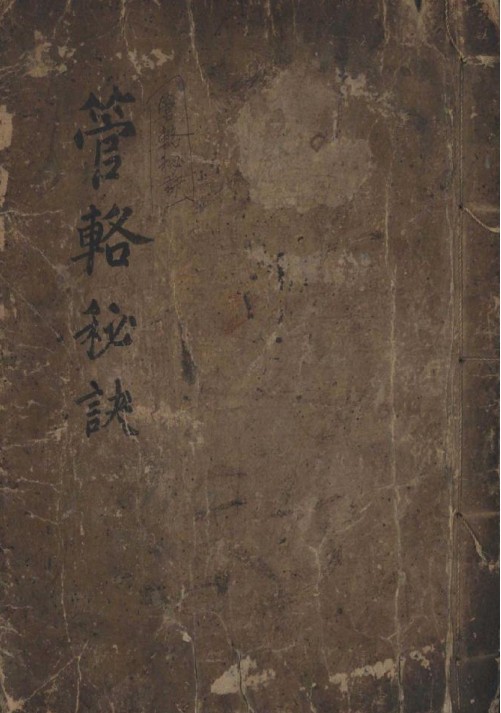 管輅秘訣